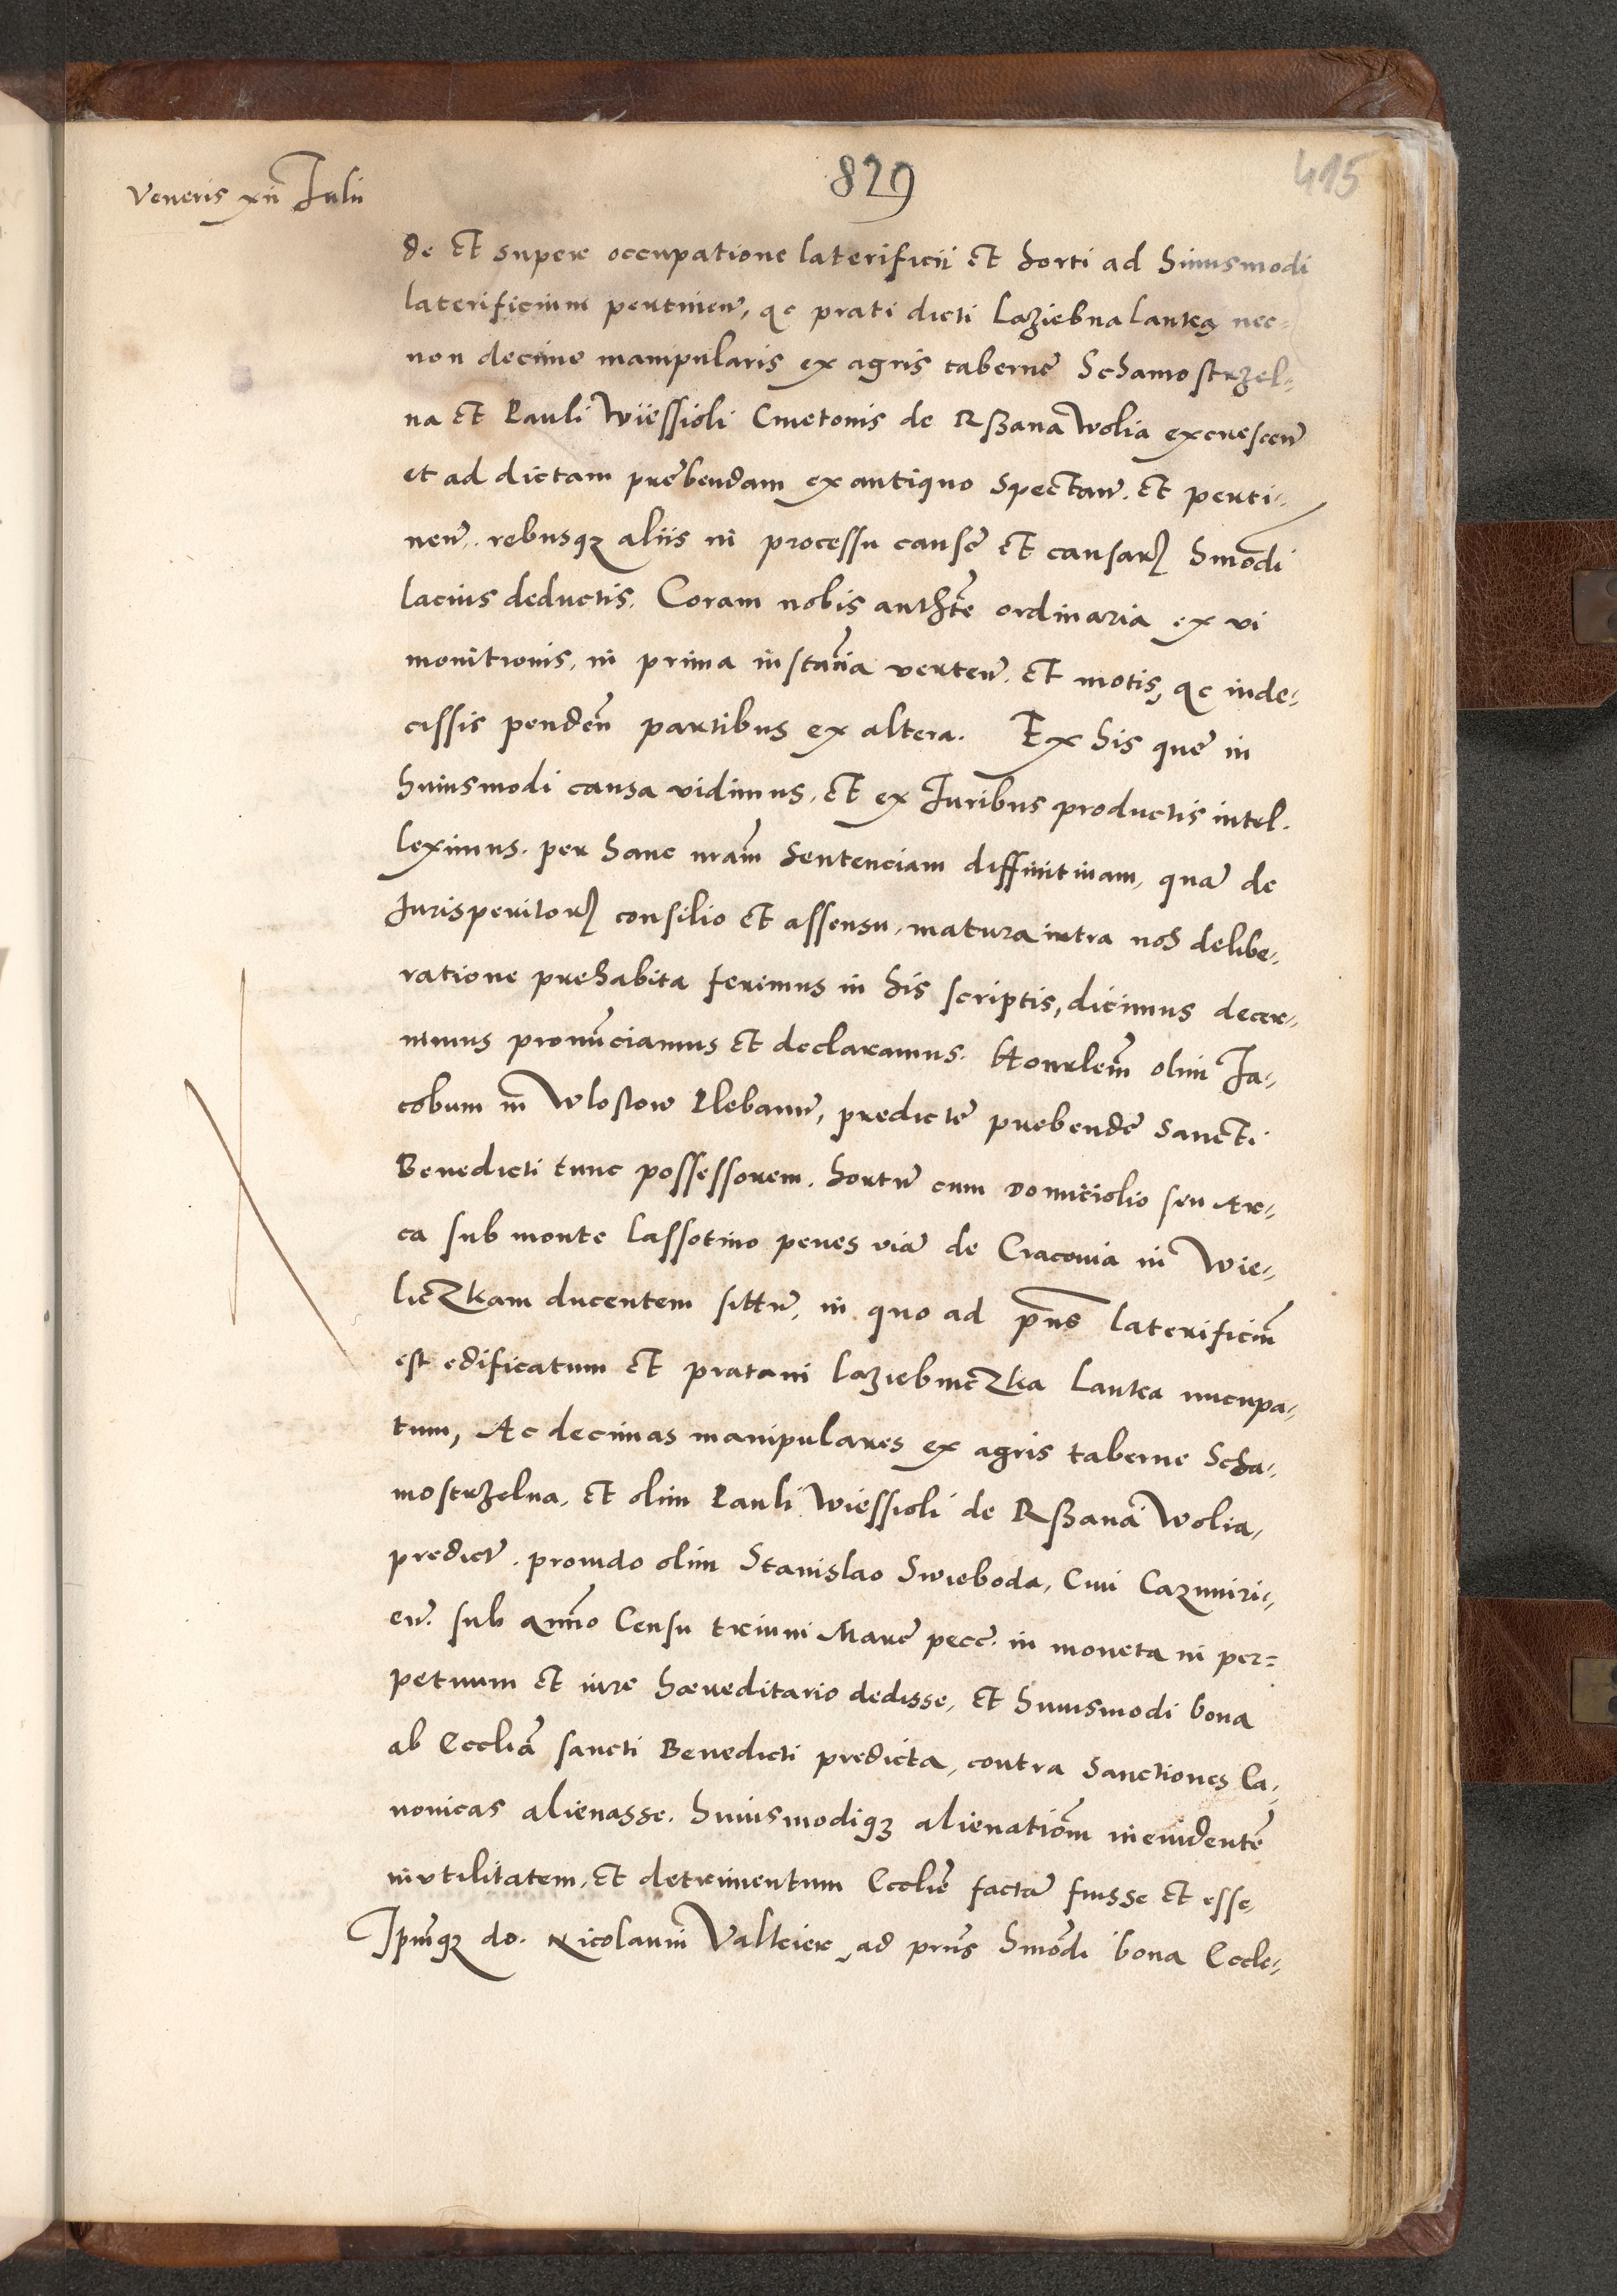 829
415
Veneris xii Julii
de et super occupatione laterificii et horti ad huiusmodi
laterificium pertinen, ac prati dicti Laziebna lanka nec-
non decime manipularis ex agris taberne Schamostrzel-
na et Pauli Wiessioli Cmetonis de Rßana Wolia excrescen
et ad dictam prebendam ex antiquo spectan. et perti-
nen. rebusqz aliis in processu cause et causarz hmodi
lacius deductis. Coram nobis authte ordinaria ex vi
monitionis, in prima instancia verten. et motis, ac inde-
cissis penden partibus ex altera. Ex his que in
huiusmodi causa vidimus, et ex Juribus productis intel-
leximus. per hanc nram sentenciam diffinitivam, qua de
Jurisperitorz consilio et assensu, matura intra nos delibe-
ratione prehabita ferimus in his scriptis, dicimus decer-
nimus pronunciamus et declaramus. Honrlem olim Ja-
cobum in Wlostow Plebanu, predicte prebende Sancti
Benedicti tunc possessorem. hortu cum domiciolio seu Are-
ca sub monte Lassotino penes via de Cracovia in Wie-
liczkam ducentem sittu, in quo ad pns laterificiu
est edificatum et pratum Laziebniczka Lanka nucupa-
tum, Ac decimas manipulares ex agris taberne Scha-
mostrzelna, et olim Pauli Wiessioli de Rßana Wolia,
predict. provido olim Stanislao Swieboda, Civi Cazimiri-
en. sub annuo Censu trium Marc pecc. in moneta in per-
petuum et iure haereditario dedisse, et huiusmodi bona
ab Ecclia sancti Benedicti predicta, contra Sanctiones Ca-
nonicas alienasse. huiusmodiqz alienatiom in evidente
inutilitatem, et detrimentum Ecclie facta fuisse et esse,
Ipmqz do. Nicolaum Valtcier, ad pns hmodi bona Eccle-